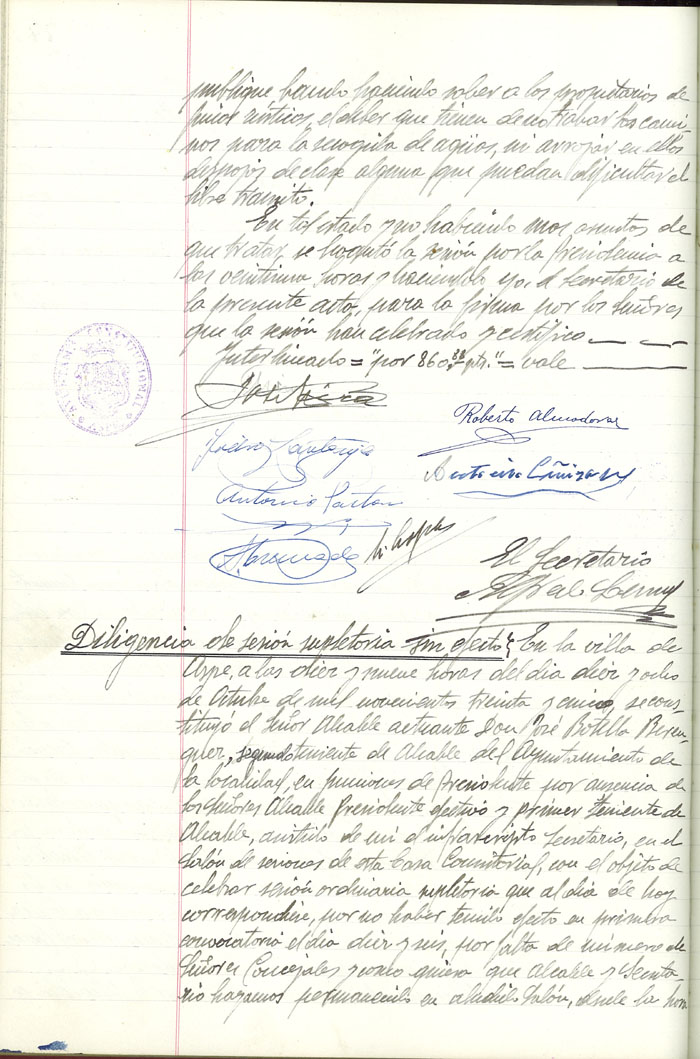 publique bando haciendo saber a los propietarios de
fincas rústicas, el deber que tienen de no trabar los cami-
nos para la recogida de aguas, ni arrojar en ellos
despojos de clase alguna que puedan dificultar el
libre tránsito.
En tal estado y no habiendo mas asuntos de
que tratar, se levantó la sesión por la Presidencia a
las veintiuna horas y haciendo yo, el Secretario de
la presente acta, para la firma por los señores
que la sesión han celebrado y certifico
Interlineado = "por 860. pts." = vale
AYUNTAMIENTO CONSTITUCIONAL
Roberto Almodovar
Antonio Cañizares
Antonio
El Secretario
Diligencia de sesión supletoria sin efecto; En la villa de
Aspe, a las diez y nueve horas del día diez y ocho
de Octubre de mil novecientos treinta y cinco, se cons-
tituyó el Señor Alcalde actuante Don José Botella Beren-
guer, segundo teniente de Alcalde del Ayuntamiento de
la localidad, en funciones de Presidente por ausencia de
los Señores Alcalde Presidente efectivo y primer teniente de
Alcalde, asistido de mí el infrascripto Secretario, en el
Salón de sesiones de esta Casa Consistorial, con el objeto de
celebrar sesión ordinaria supletoria que al día de hoy
corresponde, por no haber tenido efecto en primera
convocatoria el día diez y seis, por falta de número de
Señores Concejales y como quiera que Alcalde y Secreta-
rio hayamos permanecido en aludido Salón, desde la hora